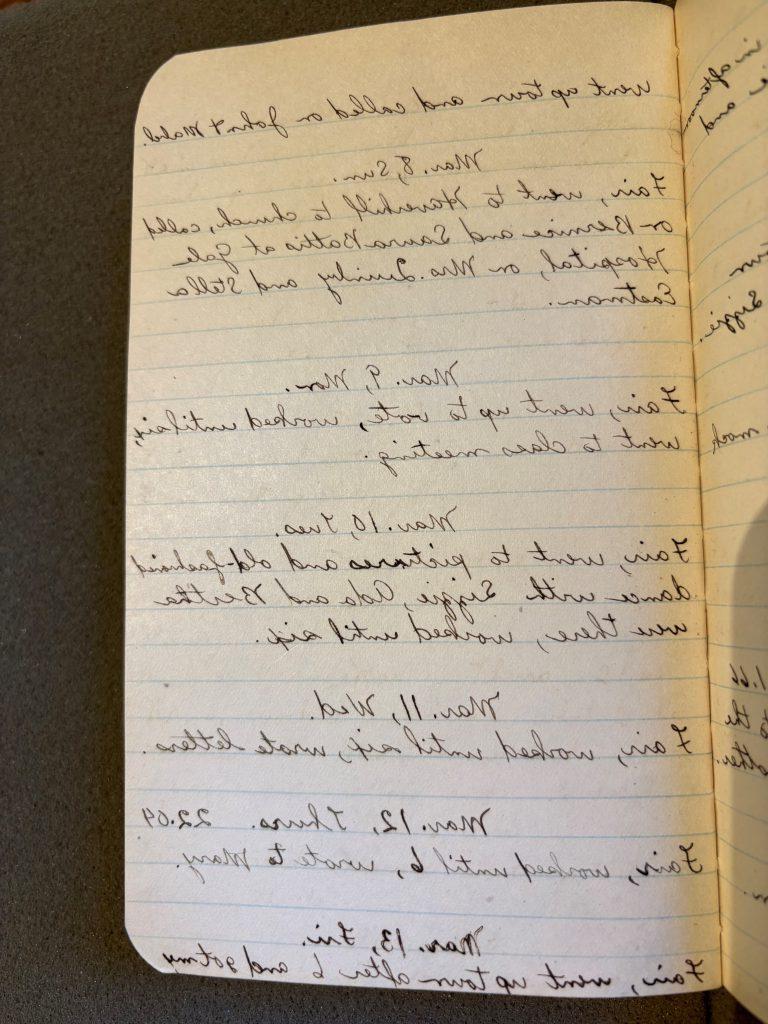 went up town and called on John & Mabel.
Mar. 8, Sun.
Fair, went to Haverhill to church, called
on Bernice and Laura Battis at Gale
Hospital, on Mrs. Quinby and Stella
Eastman.
Mar. 9, Mon.
Fair, went up to vote, worked until six,
went to class meeting.
Mar. 10, Tues.
Fair, went to pictures and old-fashioned
dance with Lizzie, Ada and Bertha
were there, worked until six.
Mar. 11, Wed.
Fair, worked until six, wrote letters.
Mar. 12, Thurs. 22.04
Fair, worked until 6, wrote to Mary.
Mar. 13, Fri.
Fair, went up town after 6 and got my
in afternoon
and
Lizzie.
1.66
to the